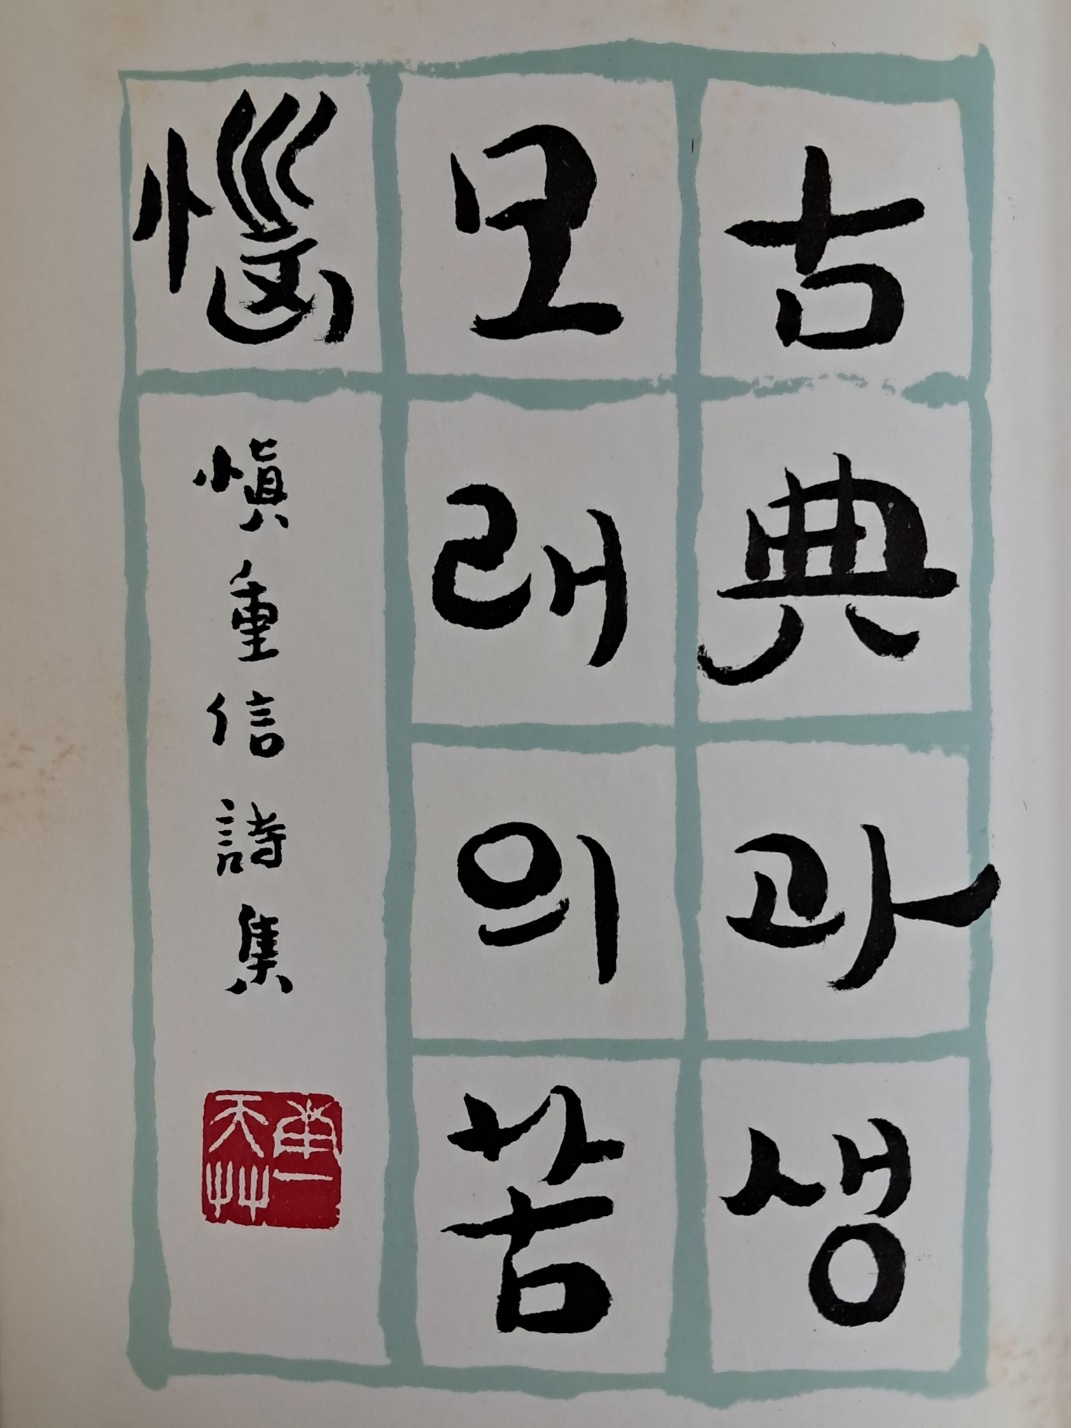 古典과생
모래의苦
惱
愼重信詩集